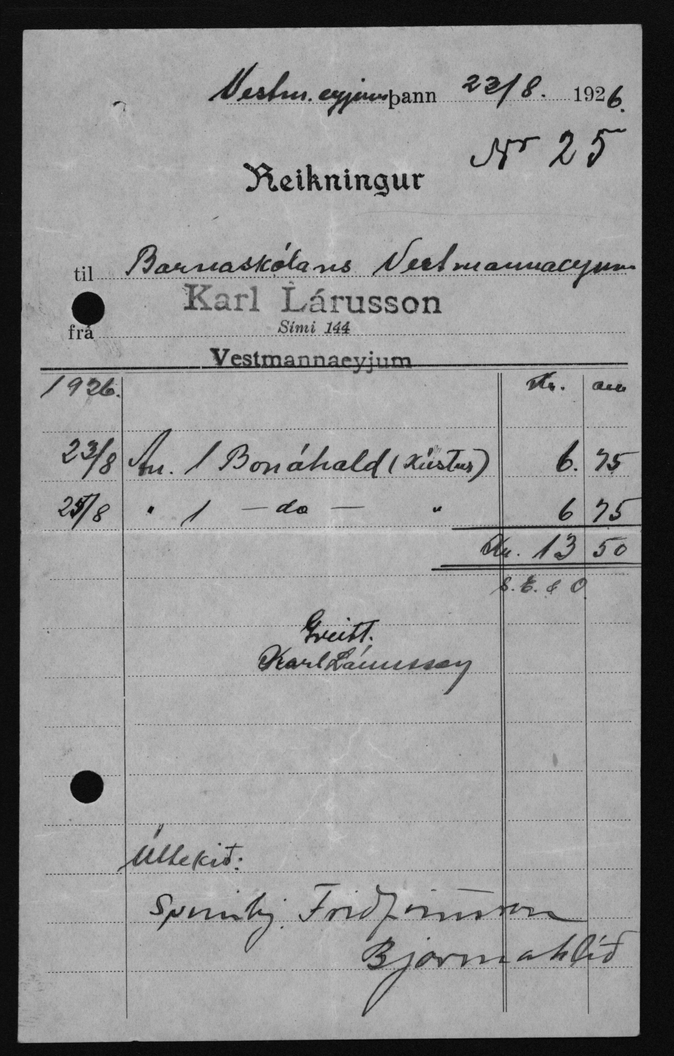 Vestm.eyjum þann 23/8. 1926.
Nr 25
Reikningur
til Barnaskólans Vestmannaeyjum
Karl Lárusson
Sími 144
frá
Vestmannaeyjum
1926. Kr. au
23/8 An. 1 Bonáhald (Kústur) 6. 75
25/8 " 1 — do — " 6 75
Kr. 13 50
S. E. & O.
Greitt.
Karl Lárusson
Úttekið:
Friðfinnsson